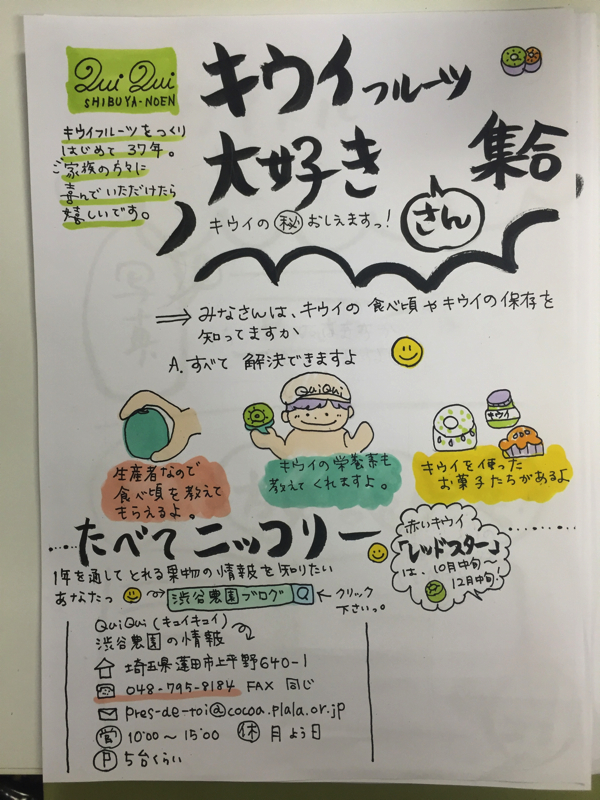 Qui Qui
SHIBUYA-NOEN
キウイフルーツをつくり
はじめて 37年。
ご家族の方々に
喜んでいただけたら
嬉しいです。
キウイフルーツ
大好き
さん
集合
キウイの㊙おしえますっ!
⇒ みなさんは、キウイの食べ頃やキウイの保存を
知ってますか
A.すべて 解決できますよ
QuiQui
キウイ
生産者なので
食べ頃を教えて
もらえるよ。
キウイの栄養素も
教えてくれますよ。
キウイを使った
お菓子たちがあるよ
たべてニッコリー
赤いキウイ
「レッドスター」
は、10月中旬〜
12月中旬!
1年を通してとれる果物の情報を知りたい
あなたっ → 渋谷農園ブログ Q ← クリック
下さいっ。
QuiQui(キュイキュイ)
渋谷農園の情報
埼玉県蓮田市上平野640-1
048-795-8184 FAX 同じ
pres-de-toi@cocoa.plala.or.jp
営 10:00〜15:00 休 月よう日
P 5台くらい